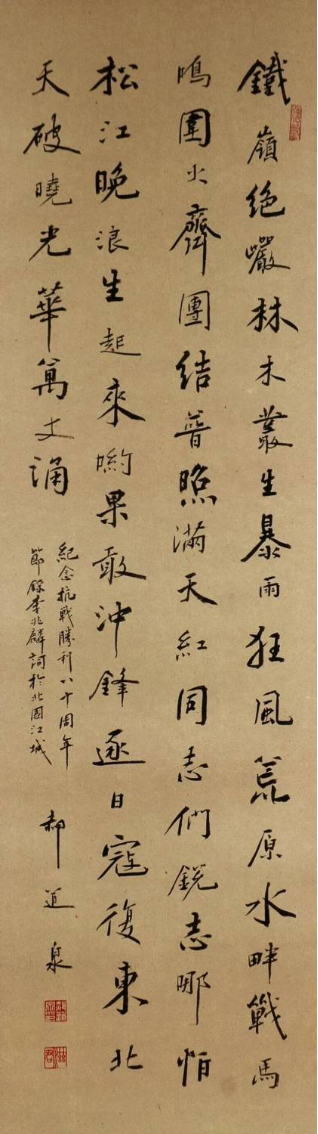 鐵嶺绝巖林木叢生暴雨狂風荒原水畔戰馬
鳴圍火齊團结普照满天红同志們銳志哪怕
松江晚浪生起來喲果敢冲鋒逐日寇復東北
天破曉光華萬丈涌
紀念抗戰勝利八十周年
節録李兆麟詞於北國江城
郝道泉